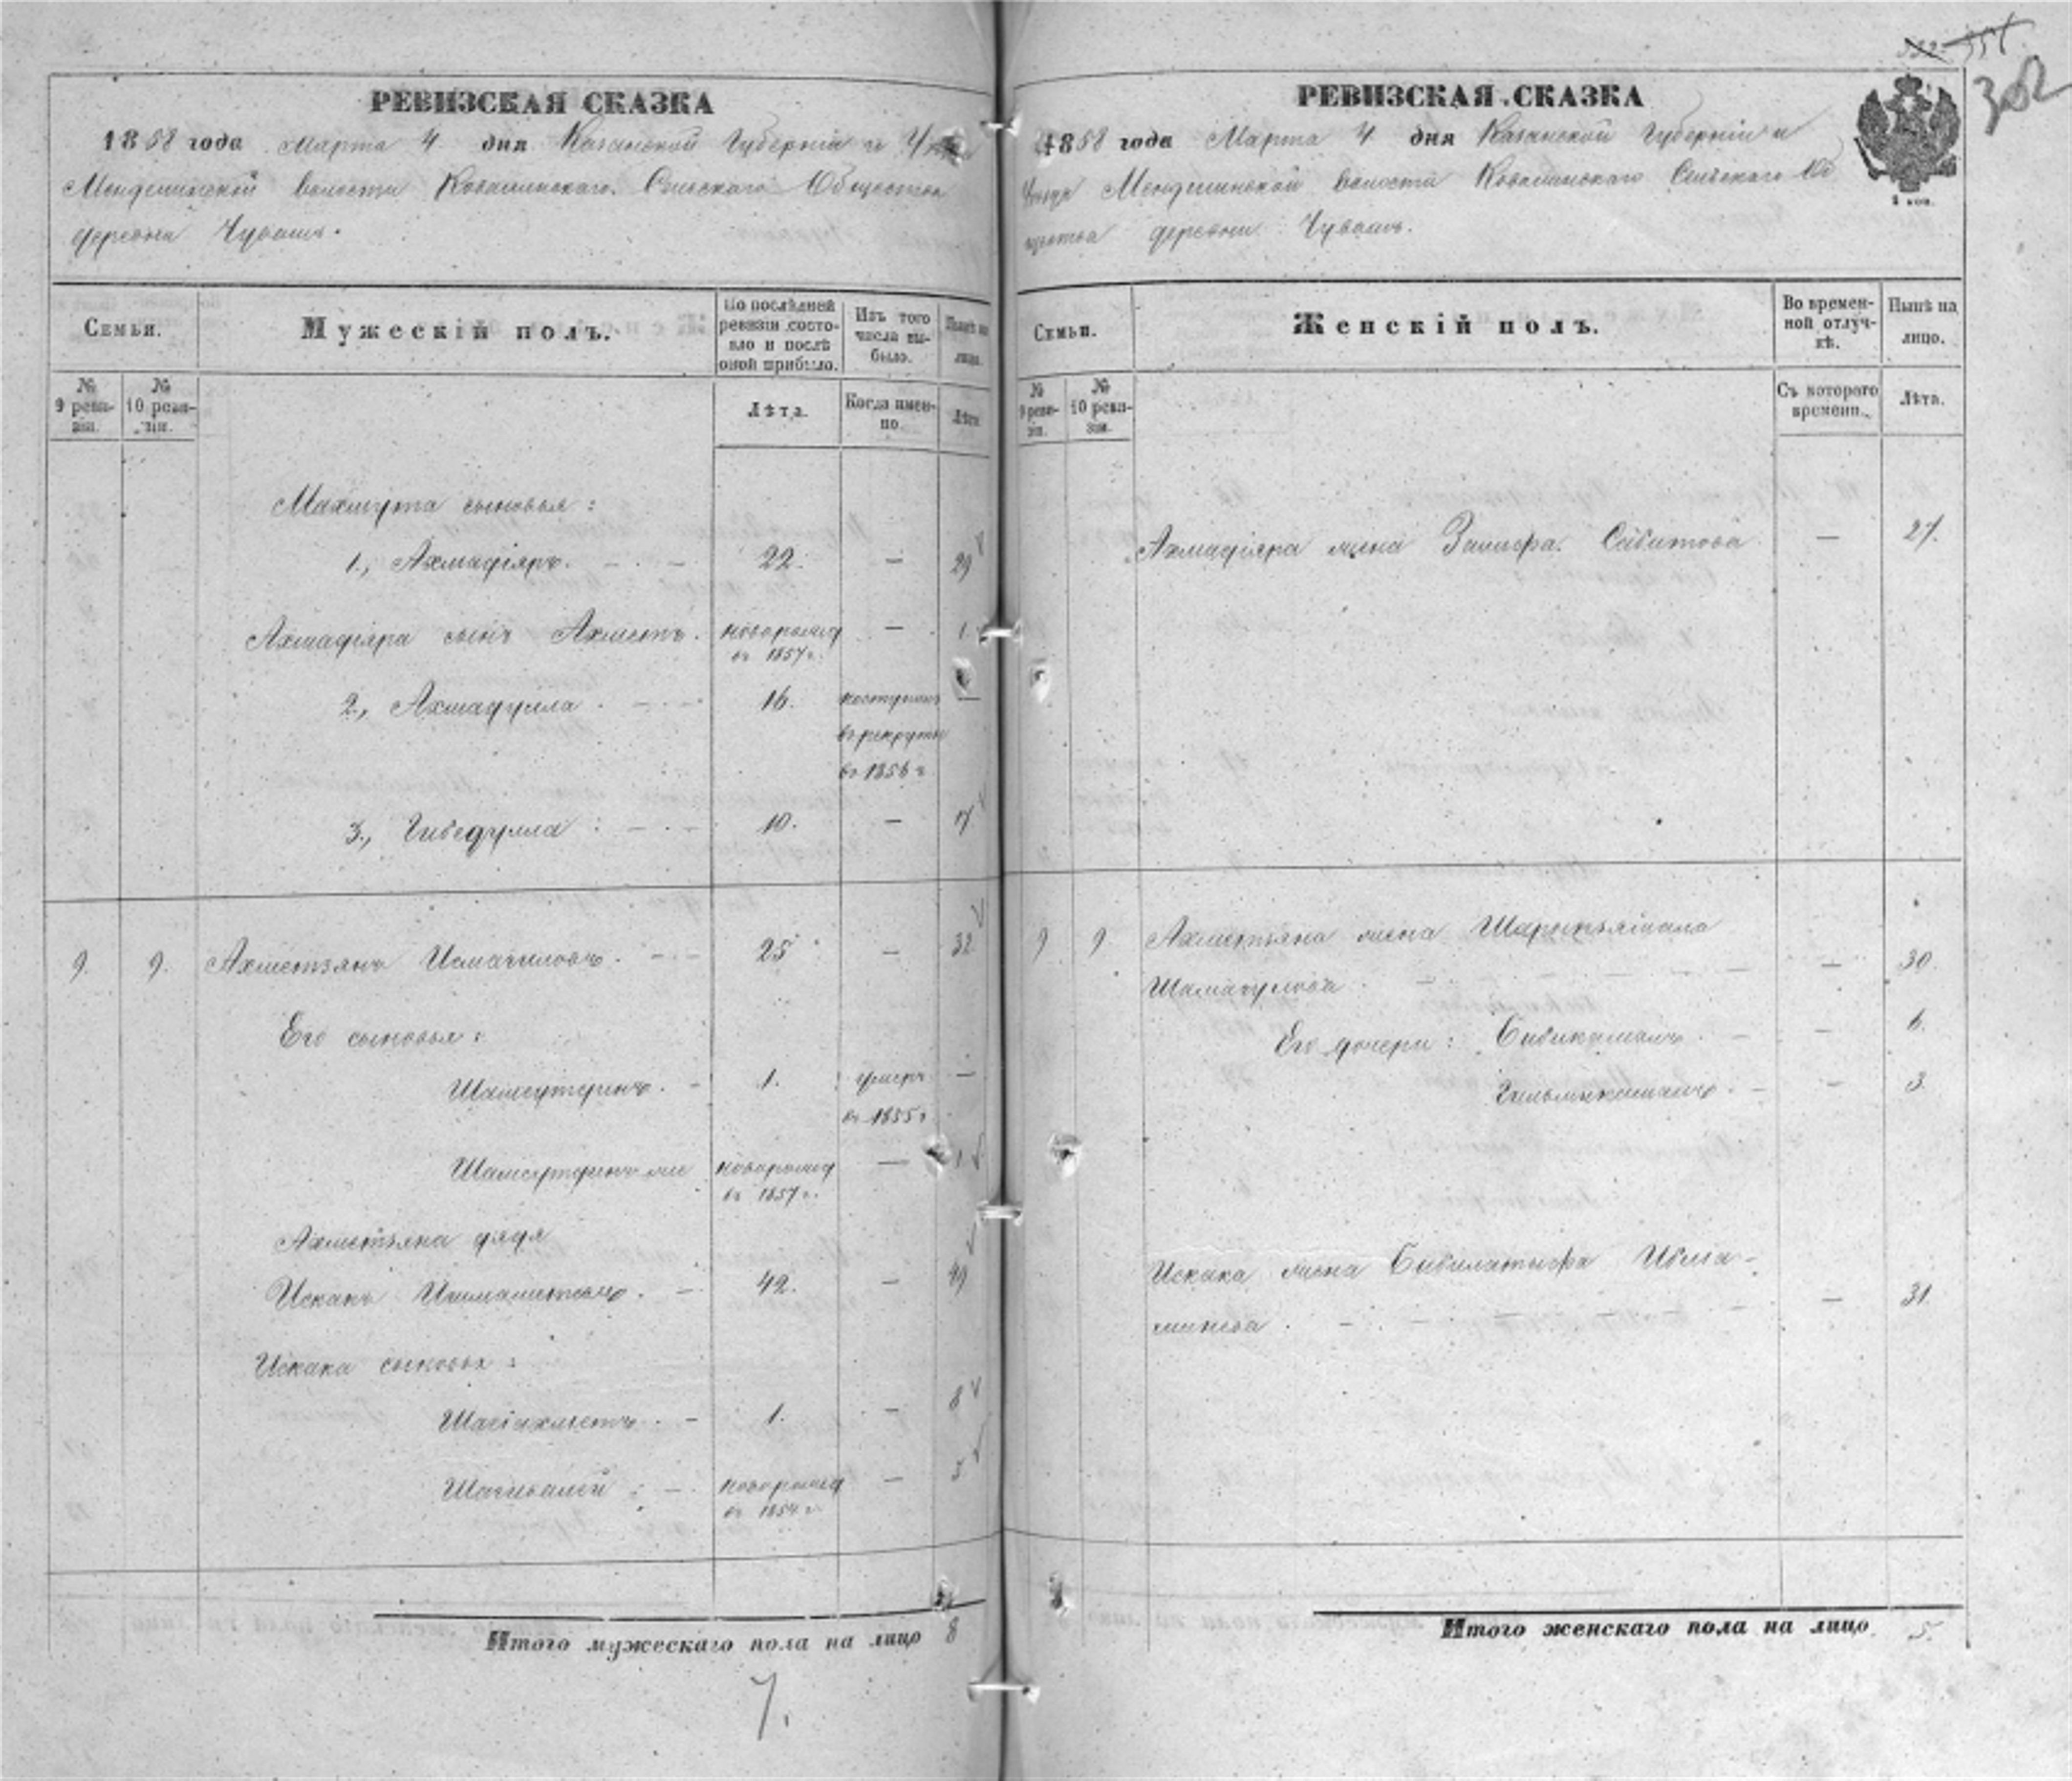 352 351
302
РЕВИЗСКАЯ СКАЗКА
1858 года Марта 4 дня Казанской Губерніи и
Мендешинской волости Ковалинскаго Сельскаго Общества
деревни Чувашъ.
Семьи.
Мужескій полъ.
По послѣдней ревизіи состояло и послѣ оной прибыло.
Изъ того числа выбыло.
Нынѣ на лицо.
№ 9 ревизіи.
№ 10 ревизіи.
Лѣта.
Когда именно.
Лѣта.
Махмута сыновья:
1., Ахмадіяръ. 22. — 29
Ахмадіяра сынъ Ахметъ. новорожд въ 1857 г. — 1.
2., Ахмадулла 16. поступилъ въ рекруты въ 1856 г —
3., Гибедулла 10. — 17
9. 9. Ахметзянъ Исмагиловъ. 25 — 32
Его сыновья:
Шамсутдинъ. 1. умеръ въ 1855 г —
Шамсутдинъ же новорожд въ 1857 г. — 1
Ахметзяна дядя
Искакъ 42. — 49
Искака сыновья:
Шагіахметъ 1. — 8
Шагивалей новорожд въ 1854 г — 3
Итого мужескаго пола на лицо 8
7.
РЕВИЗСКАЯ СКАЗКА
1858 года Марта 4 дня Казанской Губерніи и
Уѣзда Мендешинской волости Ковалинскаго Сельскаго Об
щества деревни Чувашъ.
1 коп.
Семьи.
Женскій полъ.
Во временной отлучкѣ.
Нынѣ на лицо.
№ 9 ревизіи.
№ 10 ревизіи.
Съ котораго времени.
Лѣта.
Ахмадіяра жена Сабитова — 27.
9 9 Ахметзяна жена
— 30.
Его дочери: Бибикамалъ — 6.
Гильмикамалъ — 3.
Искака жена Бибилатыфа Ибга-
минева — 31.
Итого женскаго пола на лицо 5.